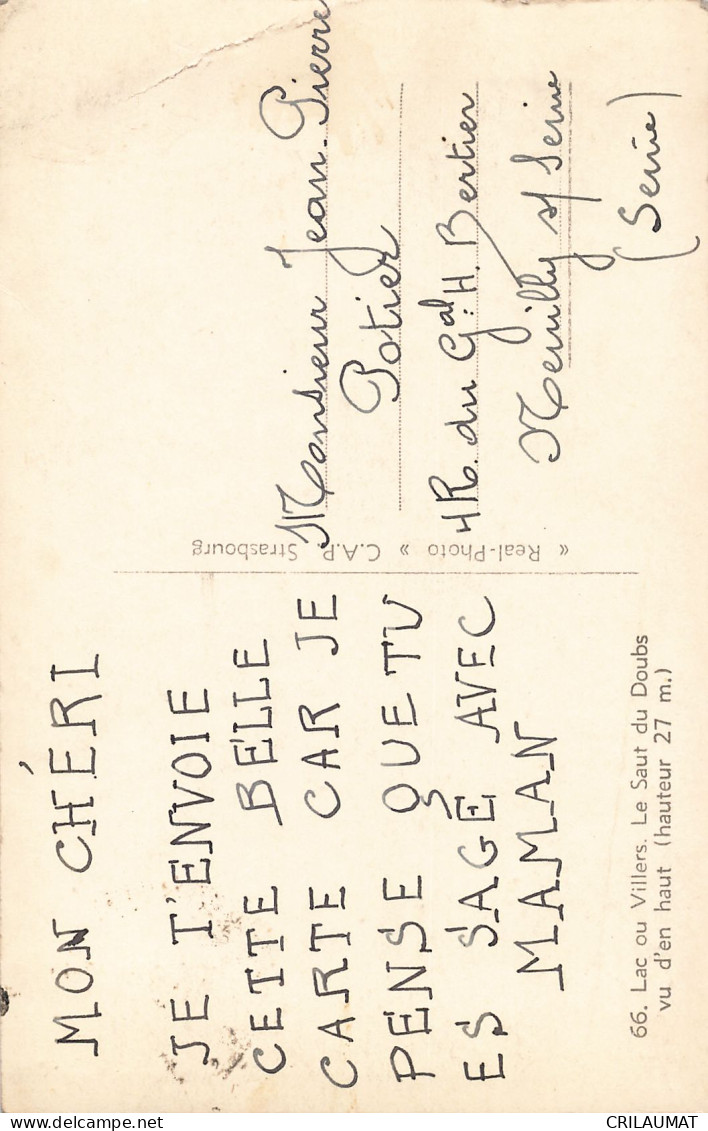 MON CHÉRI
JE T'ENVOIE
CETTE BELLE
CARTE CAR JE
PENSE QUE TU
ES SAGE AVEC
MAMAN
66. Lac ou Villers. Le Saut du Doubs
vu d'en haut (hauteur 27 m.)
« Real-Photo » C.A.P. Strasbourg
Monsieur Jean-Pierre
Potier
4 R. du Gal. H. Bertier
Neuilly s/ Seine
(Seine)
CRILAUMAT